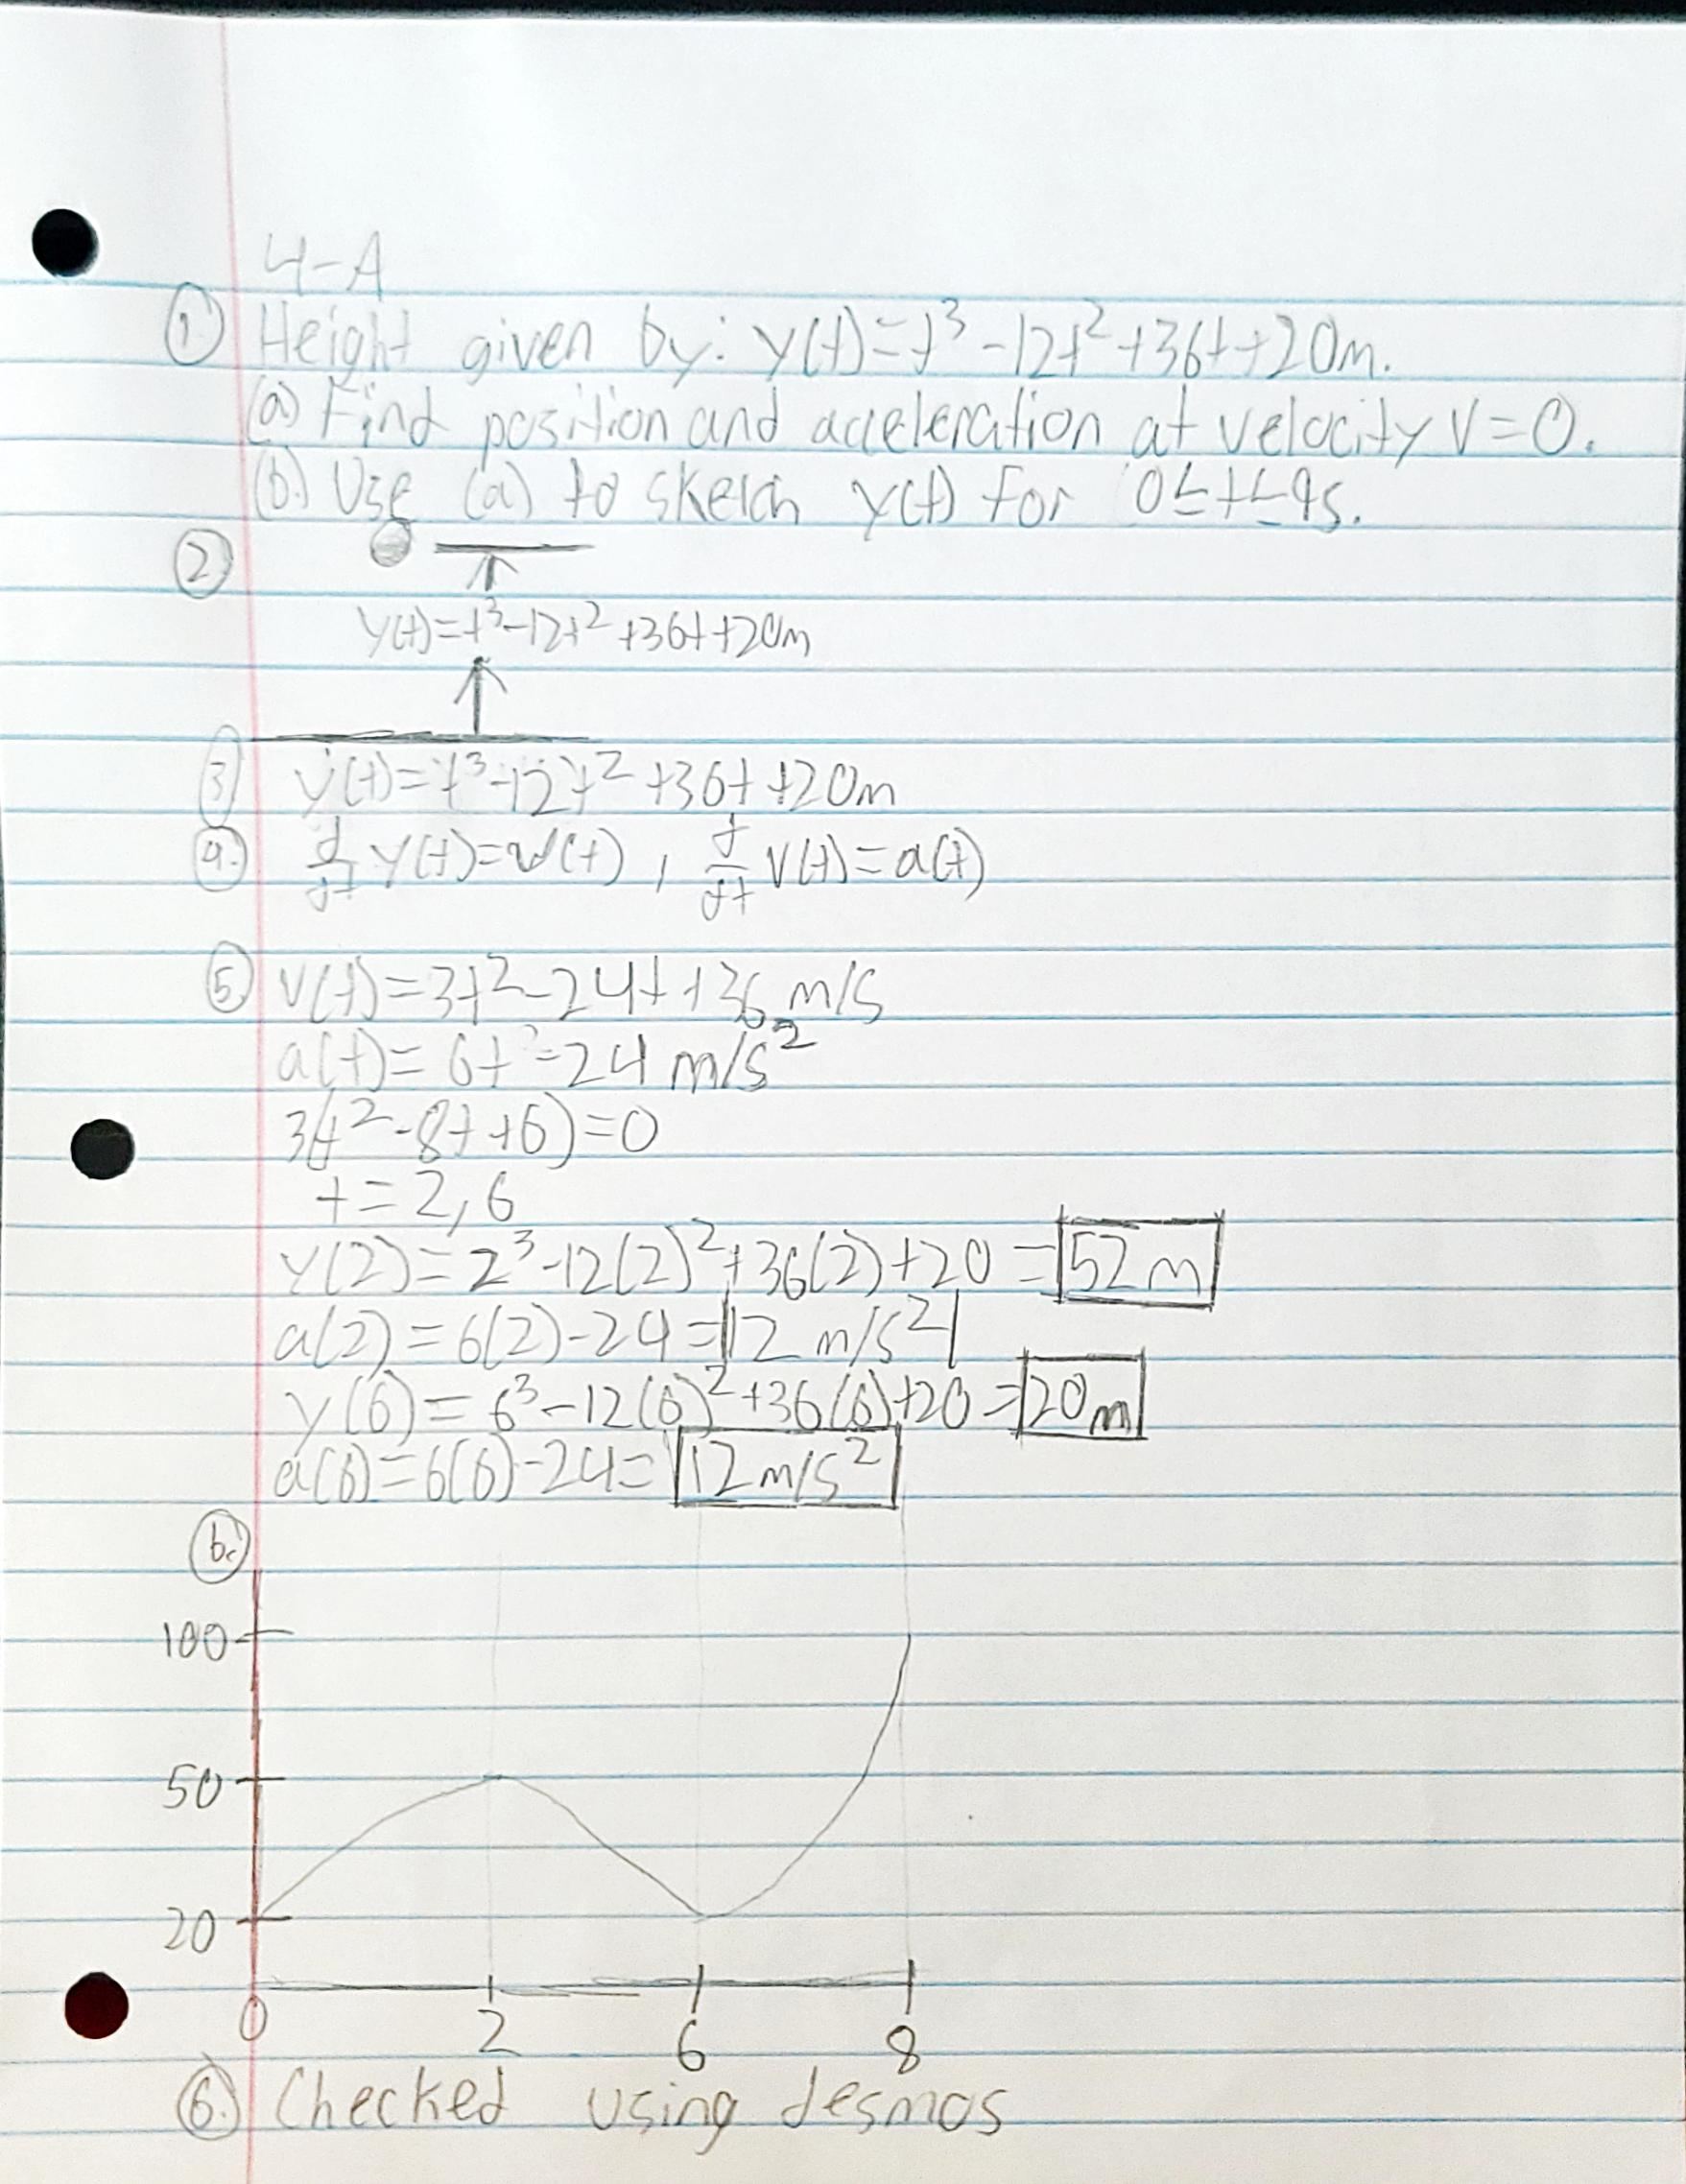 4-A
1. Height given by: y(t)=t³-12t²+36t+20m.
(a) Find position and acceleration at velocity V=0.
(b.) Use (a) to sketch y(t) for 0≤t≤9s.
2
y(t)=t³-12t²+36t+20m
3 y(t)=t³-12t²+36t+20m
4. d/dt y(t)=v(t), d/dt v(t)=a(t)
5 v(t)=3t²-24t+36 m/s
a(t)=6t-24 m/s²
3(t²-8t+6)=0
t=2,6
y(2)=2³-12(2)²+36(2)+20=52m
a(2)=6(2)-24=12 m/s²
y(6)=6³-12(6)²+36(6)+20=20m
a(6)=6(6)-24=12m/s²
b.
100
50
20
0 2 6 8
6. Checked using desmos